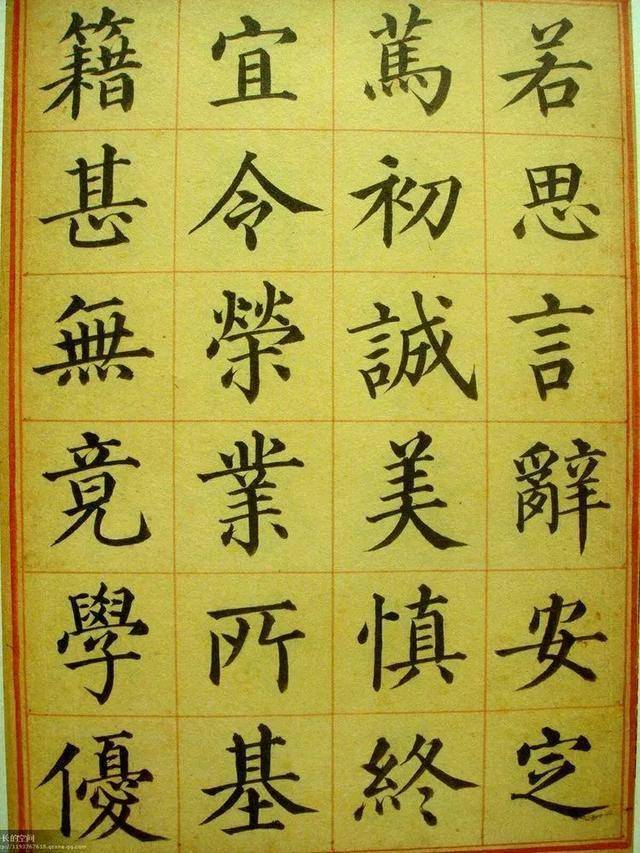 若思言辭安定
篤初誠美慎終
宜令榮業所基
籍甚無竟學優
长的空间